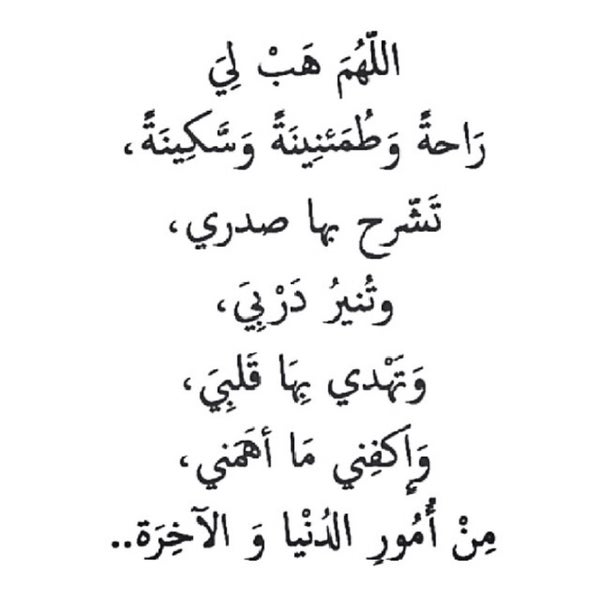 اللّهُمَ هَبْ لِيَ
رَاحةً وَطُمَئنِينَةً وَسَّكِينَةً،
تَشّرح بها صدري،
وتُنيرُ دَرْبِيَ،
وَتَهْدي بِهَا قَلبِيَ،
وَإكفِني مَا أهَمَني،
مِنْ أُمُورِ الدُنْيا وَ الآخِرَة..